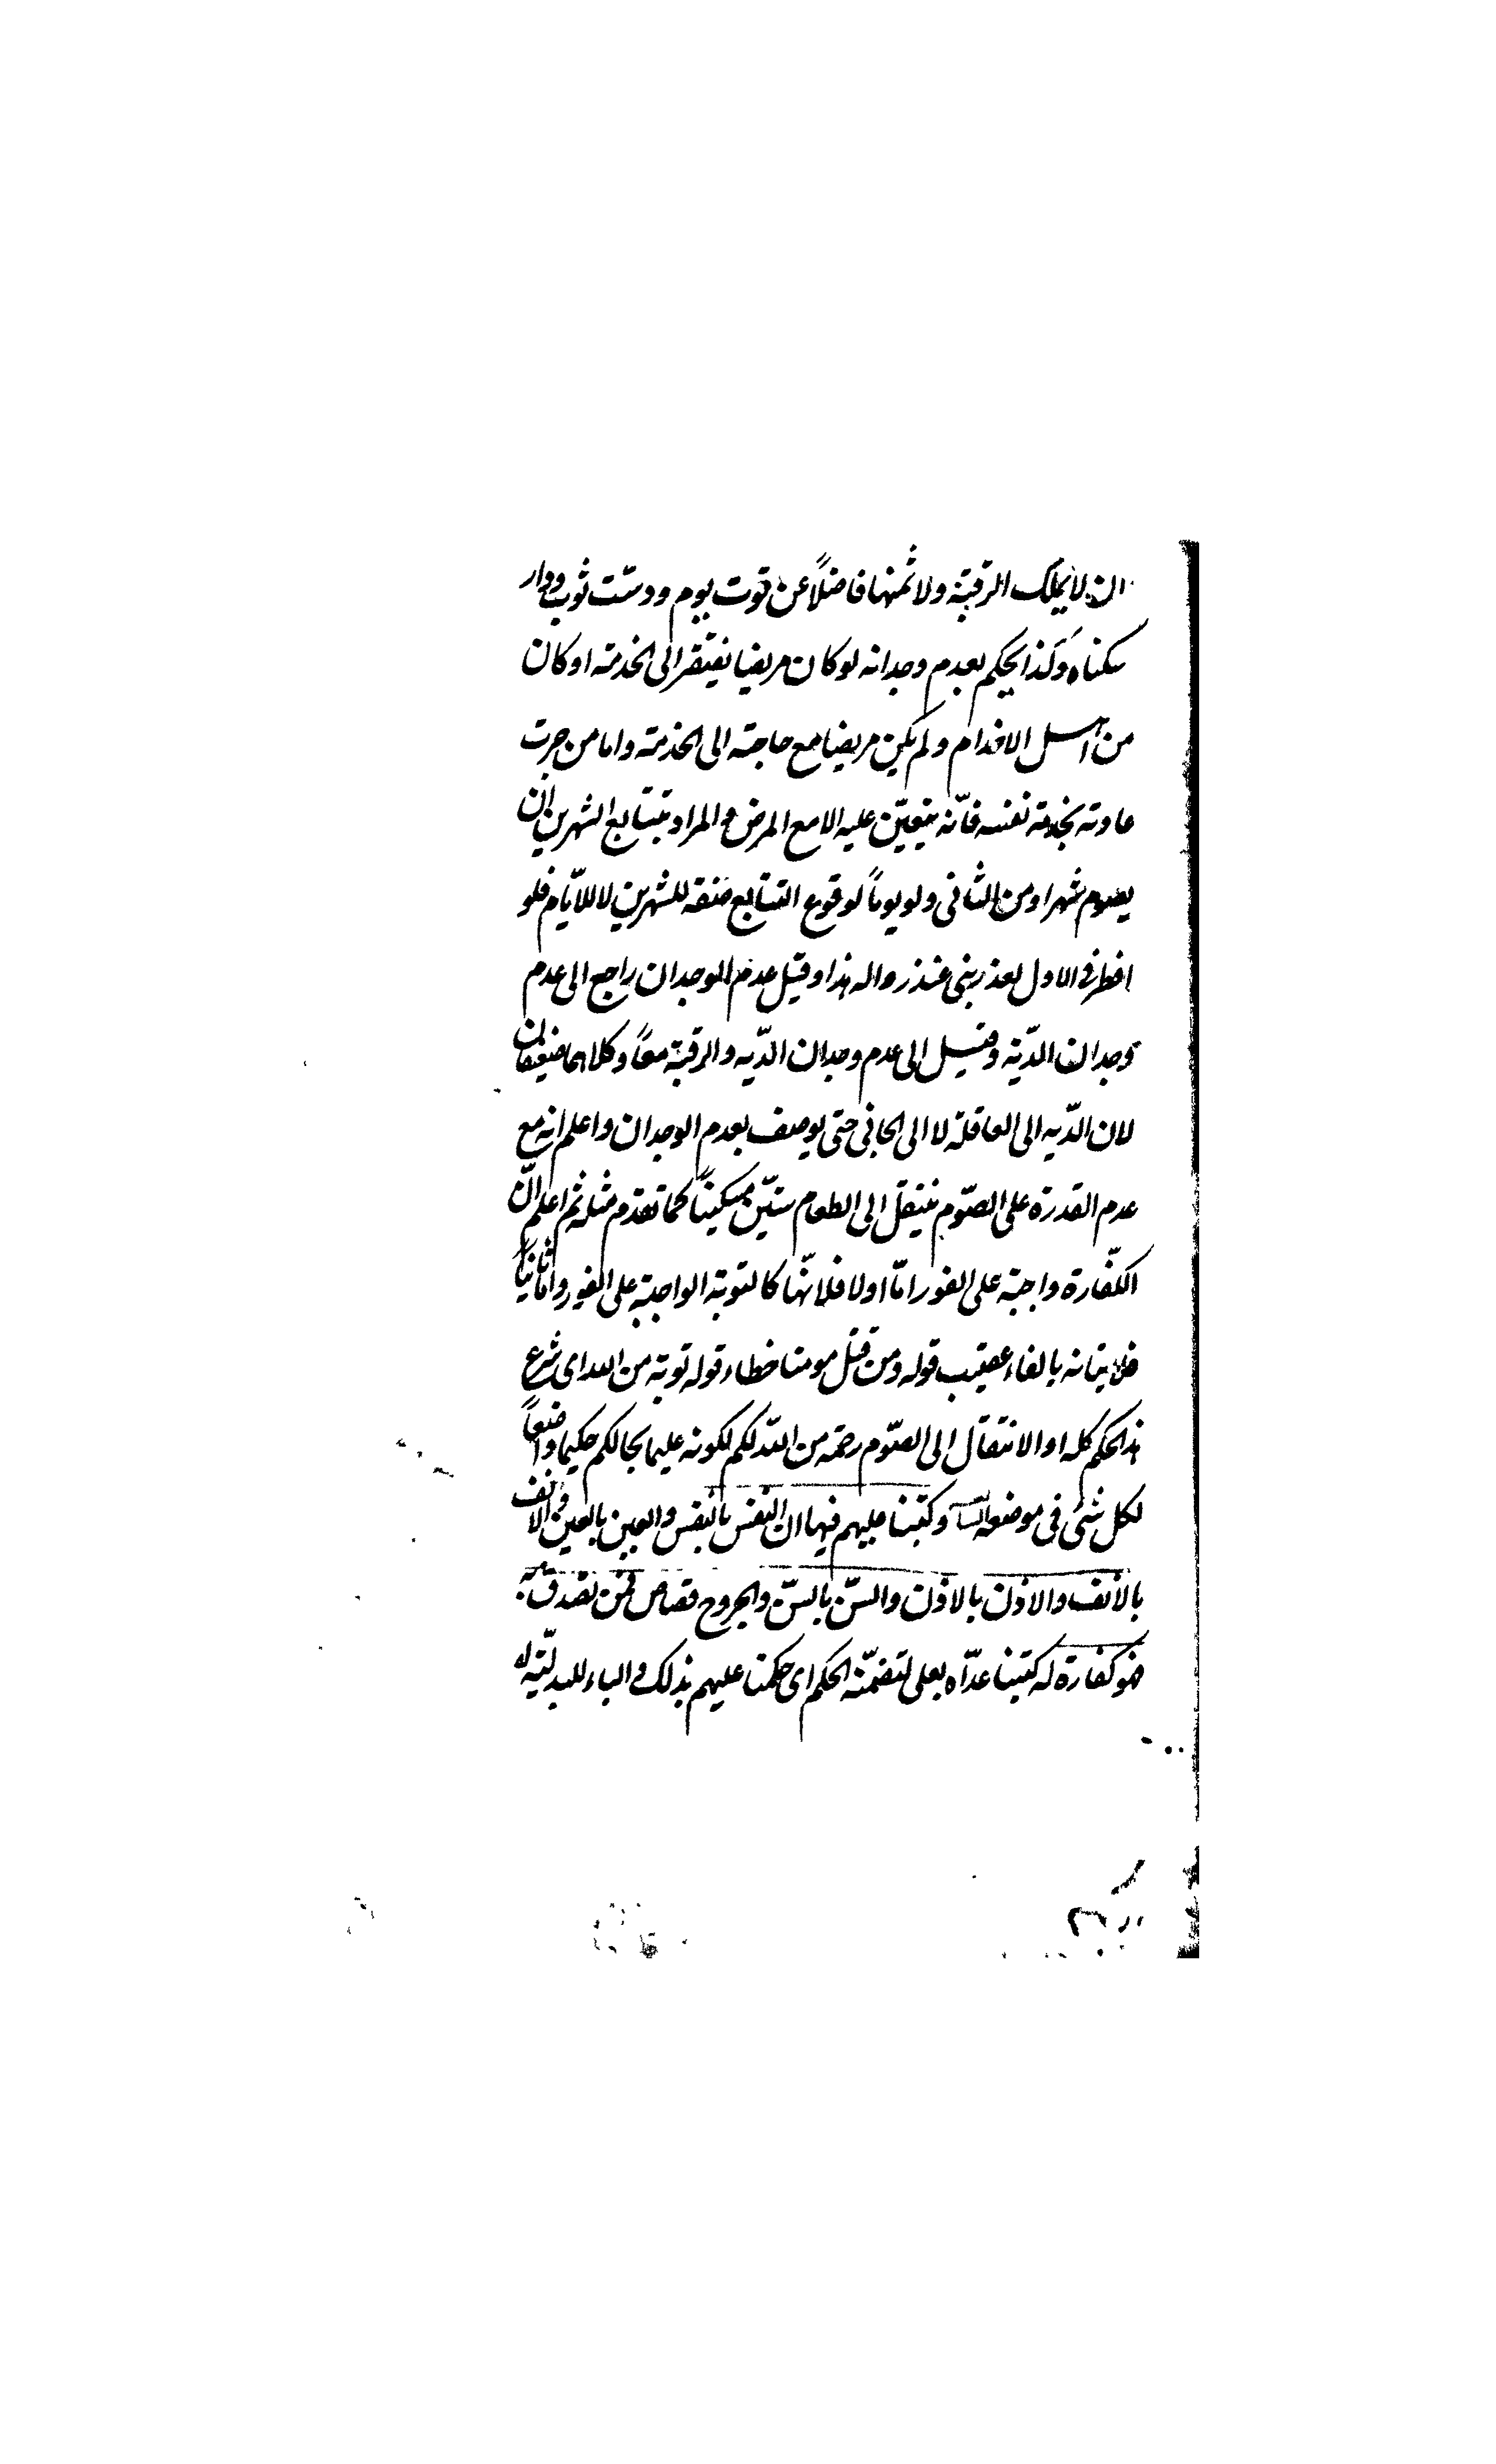 ان لا يملك الرقبة ولا ثمنها فاضلاً عن قوت يوم ودست ثوب ودار
سكناه وكذا يحكم بعدم وجدانه لو كان مريضا يفتقر الى الخدمة او كان
من اهل الاخدام ولم يكن مريضا مع حاجته الى الخدمة واما من جرت
عادته بخدمة نفسه فانّه يتعيّن عليه الا مع المرض و المراد بتتابع الشهرين ان
يصوم شهرا ومن الثانى ولو يوماً لوقوع التتابع صفة للشهرين لا للايّام فلو
افطر فى الاول لعذر بنى عند زواله هذا وقيل عدم الوجدان راجع الى عدم
وجدان الدّية وقيل الى عدم وجدان الدّيه والرقبة معاً وكلاهما ضعيفان
لان الدّيه الى العاقلة لا الى الجانى حتى يوصف بعدم الوجدان واعلم انه مع
عدم القدرة على الصّوم ينتقل الى اطعام ستّين مسكيناً كما تقدم مثله ثم اعلم انّ
الكفّارة واجبة على الفور امّا اولا فلانّها كالتوبة الواجبة على الفور واما ثانياً
فلاتيانه بالفاء عقيب قوله ومن قتل مومنا خطاء قوله توبة من الله اى شرع
هذا الحكم كله او الانتقال الى الصّوم رحمة من اللّه لكم لكونه عليما بحالكم حكيما واضعاً
لكل شئ فى موضعه وكتبنا عليهم فيها ان النفس بالنفس والعين بالعين والانف
بالانف والاذن بالاذن والسّن بالسّن والجروح قصاص فمن تصدق به
فهو كفارة له كتبنا عدّاه بعلى لتضمّنه الحكم اى حكمنا عليهم بذلك و الباء للبدليّة له